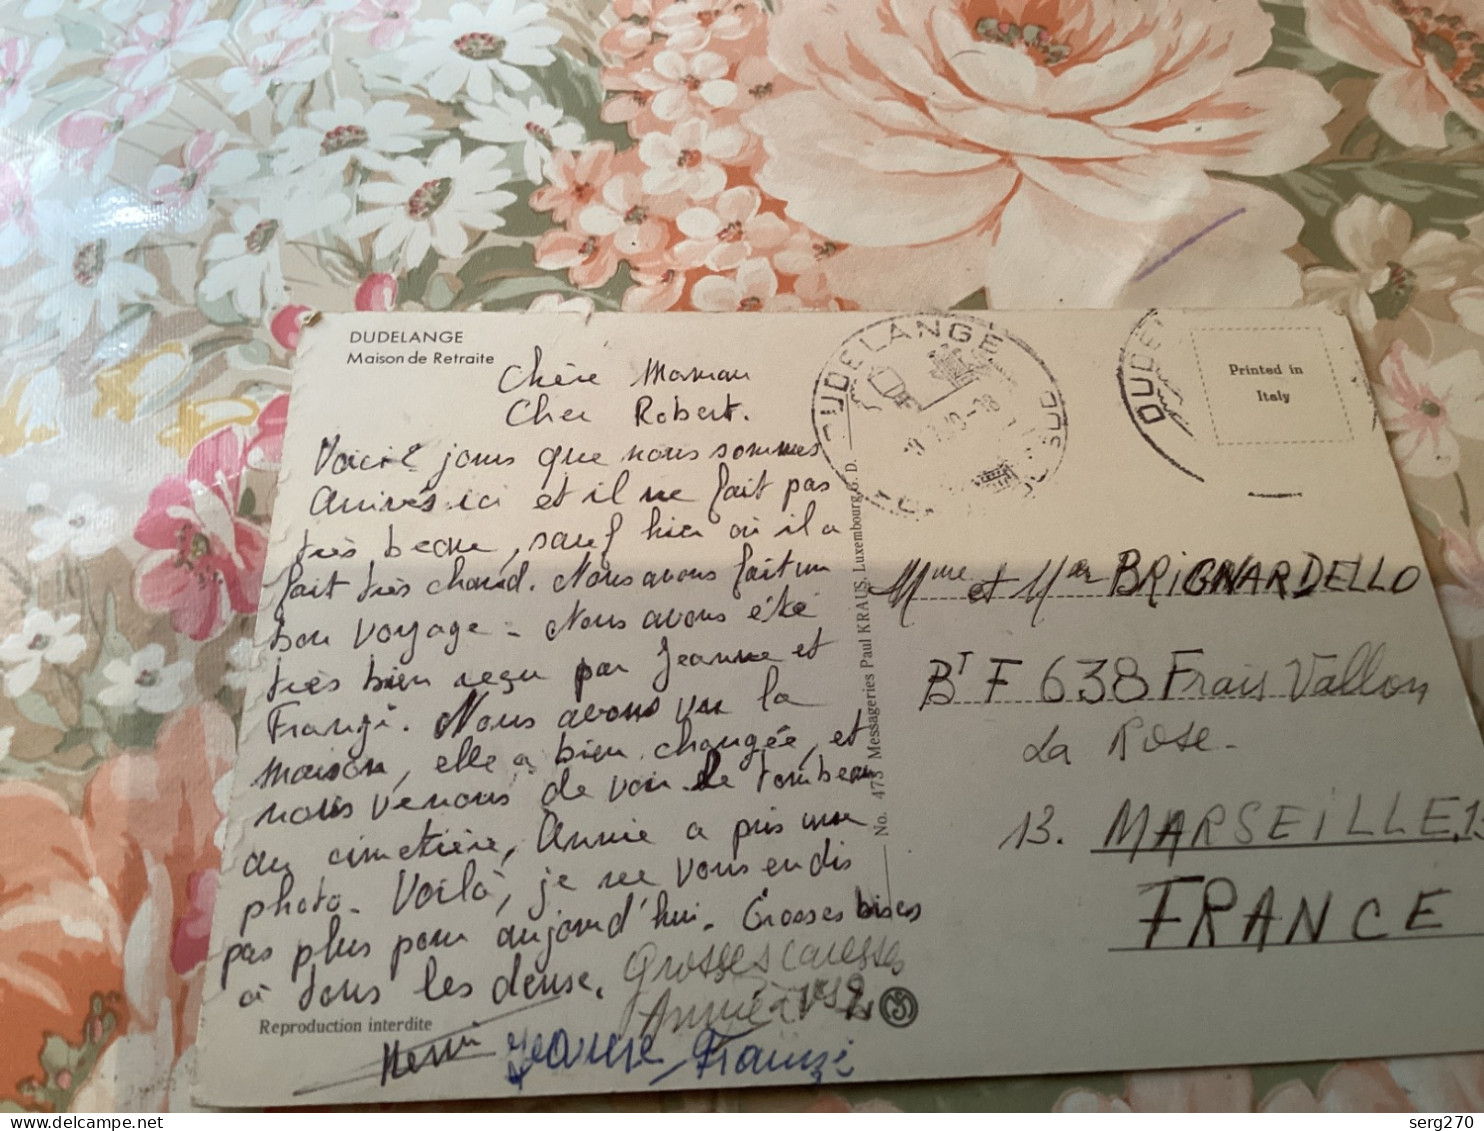 DUDELANGE
Maison de Retraite
Chère Maman
Cher Robert.
jours que nous sommes
Arrivés ici et il ne fait pas
très beau, sauf hier où il a
fait très chaud. Nous avons fait un
bon voyage - Nous avons été
très bien reçu par Jeanne et
Franzi. Nous avons vu la
maison, elle a bien changée, et
nous venons de voir le tombeau
au cimetière, Annie a pris une
photo. Voilà, je ne vous en dis
pas plus pour aujourd'hui. Grosses bises
à tous les deux.
Grosses caresses
Annie
Henri
Jeanne, Franzi
Reproduction interdite
No. 473 Messageries Paul KRAUS, Luxembourg G. D.
DUDELANGE
DUDE
Printed in
Italy
Mme et Mer BRIGNARDELLO
BT F 638 Frais Vallon
La Rose -
13. MARSEILLE 13
FRANCE
serg270